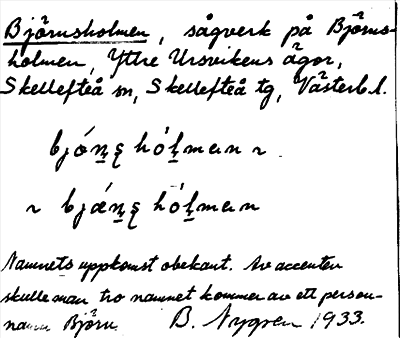 Björnsholmen, sågverk på Björns-
holmen, Yttre Ursvikens ägor,
Skellefteå sn, Skellefteå tg, Västerb. l.
bjǿn̠ʂ hól̠man ~
~ bjǽn̠ʂ hól̠man
Namnets uppkomst obekant. Av accenten
skulle man tro namnet kommer av ett person-
namn Björn. B. Nygren 1933.